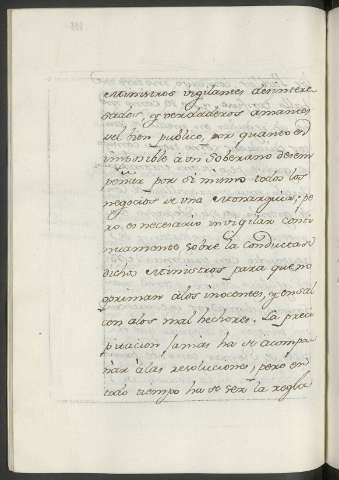 Ministros vigilantes desintere
sados, y verdaderos amantes
del bien publico, por quanto es
imposible a un Soberano desem
peñar por si mismo todos los
negocios de una Monarquia; pe
ro es necesario invigilar conti
nuamente sobre la conducta de
dichos Ministros para que no
opriman a los inocentes, y ensal
cen a los mal hechores. La preci
pitacion jamas ha de acompa
ñar à las resoluciones, pero en
todo tiempo ha de ser la regla